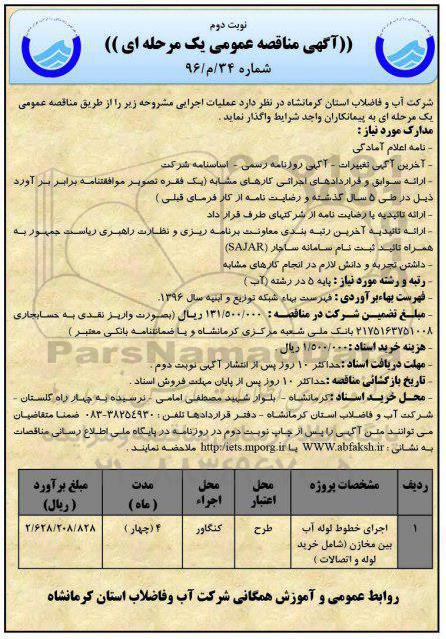 نوبت دوم
((آگهی مناقصه عمومی یک مرحله ای ))
شماره ۳۴/م/۹۶
شرکت آب و فاضلاب استان کرمانشاه در نظر دارد عملیات اجرایی مشروحه زیر را از طریق مناقصه عمومی
یک مرحله ای به پیمانکاران واجد شرایط واگذار نماید .
مدارک مورد نیاز :
- نامه اعلام آمادگی
- آخرین آگهی تغییرات - آگهی روزنامه رسمی - اساسنامه شرکت
- ارائه سوابق و قراردادهای اجرائی کارهای مشابه (یک فقره تصویر موافقتنامه برابر بر آورد
ذیل در طی ۵ سال گذشته و رضایت نامه از کار فرمای قبلی )
- ارائه تائیدیه یا رضایت نامه از شرکتهای طرف قرار داد
- ارائه تائیدیه آخرین رتبه بندی معاونت برنامه ریزی و نظارت راهبری ریاست جمهور به
همراه تائید ثبت نام سامانه ساجار (SAJAR)
- داشتن تجربه و دانش لازم در انجام کارهای مشابه
- رتبه و رشته مورد نیاز : پایه ۵ در رشته (آب )
- فهرست بهاءبرآوردی : فهرست بهاء شبکه توزیع و ابنیه سال ۱۳۹۶.
- مبلغ تضمین شرکت در مناقصه : ۱۳۱/۵۰۰/۰۰۰ ریال (بصورت واریز نقدی به حسابجاری
۲۱۷۵۱۶۳۷۵۱۰۰۸ بانک ملی شعبه مرکزی کرمانشاه و یا ضمانتنامه بانکی معتبر )
- هزینه خرید اسناد :۱/۵۰۰/۰۰۰ ریال
- مهلت دریافت اسناد :حداکثر ۱۰ روز پس از انتشار آگهی نوبت دوم .
- تاریخ بازگشائی مناقصه :حداکثر ۱۰ روز پس از پایان مهلت فروش اسناد .
- محل خرید اسناد :کرمانشاه - بلوار شهید مصطفی امامی - نرسیده به چهار راه گلستان -
شرکت آب و فاضلاب استان کرمانشاه - دفتر قراردادها تلفن : ۳۸۲۵۴۹۳۰-۰۸۳ ضمنا متقاضیان
می توانند متن آگهی را پس از چاپ نوبت دوم در روزنامه در پایگاه ملی اطلاع رسانی مناقصات
به نشانی : WWW.abfaksh.ir یا http:/iets.mporg.ir ملاحظه نمایند .
ردیف مشخصات پروژه محل اعتبار محل اجراء مدت ( ماه ) مبلغ برآورد ( ریال)
۱ اجرای خطوط لوله آب بین مخازن (شامل خرید لوله و اتصالات ) طرح کنگاور ۴ (چهار ) ۲/۶۲۸/۲۰۸/۸۲۸
روابط عمومی و آموزش همگانی شرکت آب وفاضلاب استان کرمانشاه
ParsNamadData